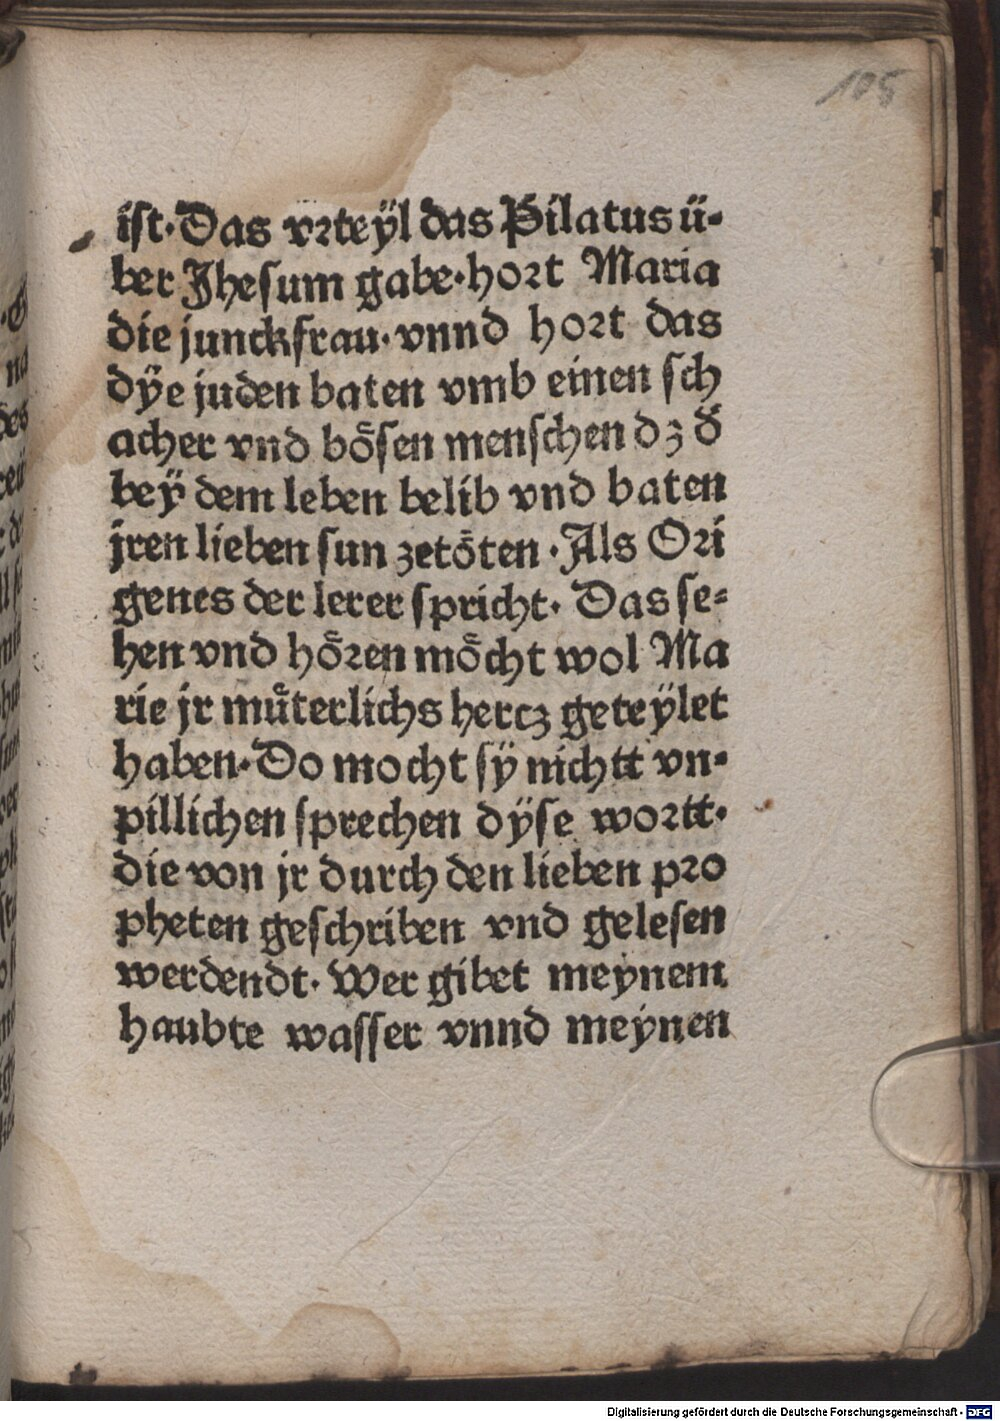 105
ist. Das vrteÿl das Pilatus ü-
ber Jhesum gabe. hort Maria
die junckfrau. vnnd hort das
dÿe juden baten vmb einen sch
acher vnd boͤsen menschen dz d̄
beÿ dem leben belib vnd baten
jren lieben sun zetoͤten. Als Ori
genes der lerer spricht. Das se-
hen vnd hoͤren moͤcht wol Ma
rie jr muͤterlichs hercz geteÿlet
haben. Do mocht sÿ nichtt vn-
pillichen sprechen dÿse wortt.
die von jr durch den lieben pro
pheten geschriben vnd gelesen
werdendt. Wer gibet meynem
haubte wasser vnnd meynen
Digitalisierung gefördert durch die Deutsche Forschungsgemeinschaft - DFG